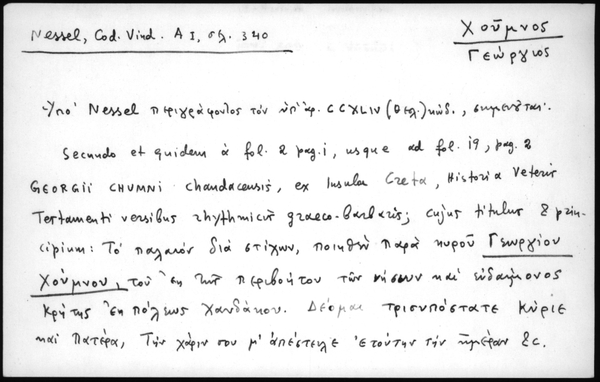 Nessel, Cod. Vind. A I, σελ. 340
Χοῦμνος
Γεώργιος
Ὑπὸ Nessel περιγράφοντος τὸν ὑπ' ἀρ. CCXLIV (θελ.) κώδ., σημειοῦται:
Secundo et quidem à fol. 2 pag. 1, usque ad fol. 19, pag. 2
GEORGII CHUMNI Chandacensis, ex Insula Creta, Historia Veteris
Testamenti versibus rhythmicis graeco-barbaris; cujus titulus & prin-
cipium: Τὸ παλαιὸν διὰ στίχων, ποιηθὲν παρὰ κυροῦ Γεωργίου
Χούμνου, τοῦ ἐκ τῆς περιβοήτου τῶν νήσων καὶ εὐδαίμονος
Κρήτης ἐκ πόλεως Χανδάκου. Δέομαι τρισυπόστατε Κύριε
καὶ Πατέρα, Τὴν χάριν σου μ' ἀπέστειλε ἐτούτην τὴν ἡμέραν &c.